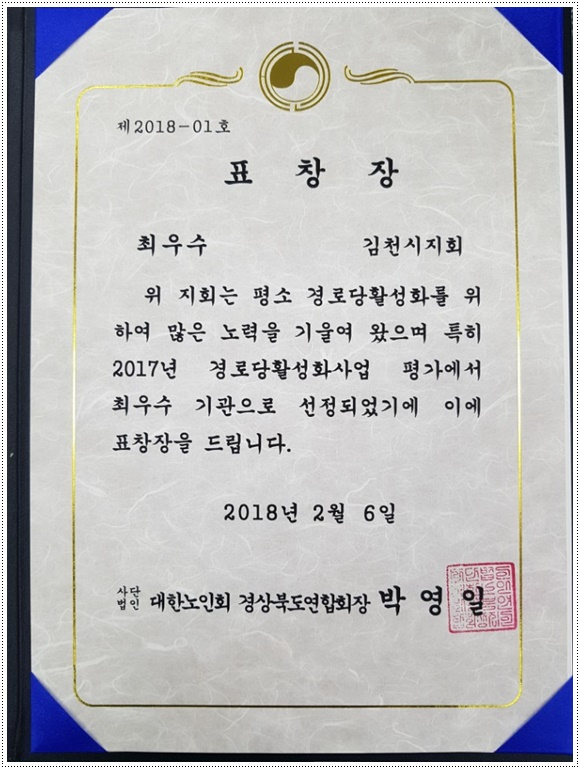 제2018-01호
표 창 장
최우수 김천시지회
위 지회는 평소 경로당활성화를 위
하여 많은 노력을 기울여 왔으며 특히
2017년 경로당활성화사업 평가에서
최우수 기관으로 선정되었기에 이에
표창장을 드립니다.
2018년 2월 6일
사단법인 대한노인회 경상북도연합회장 박 영 일